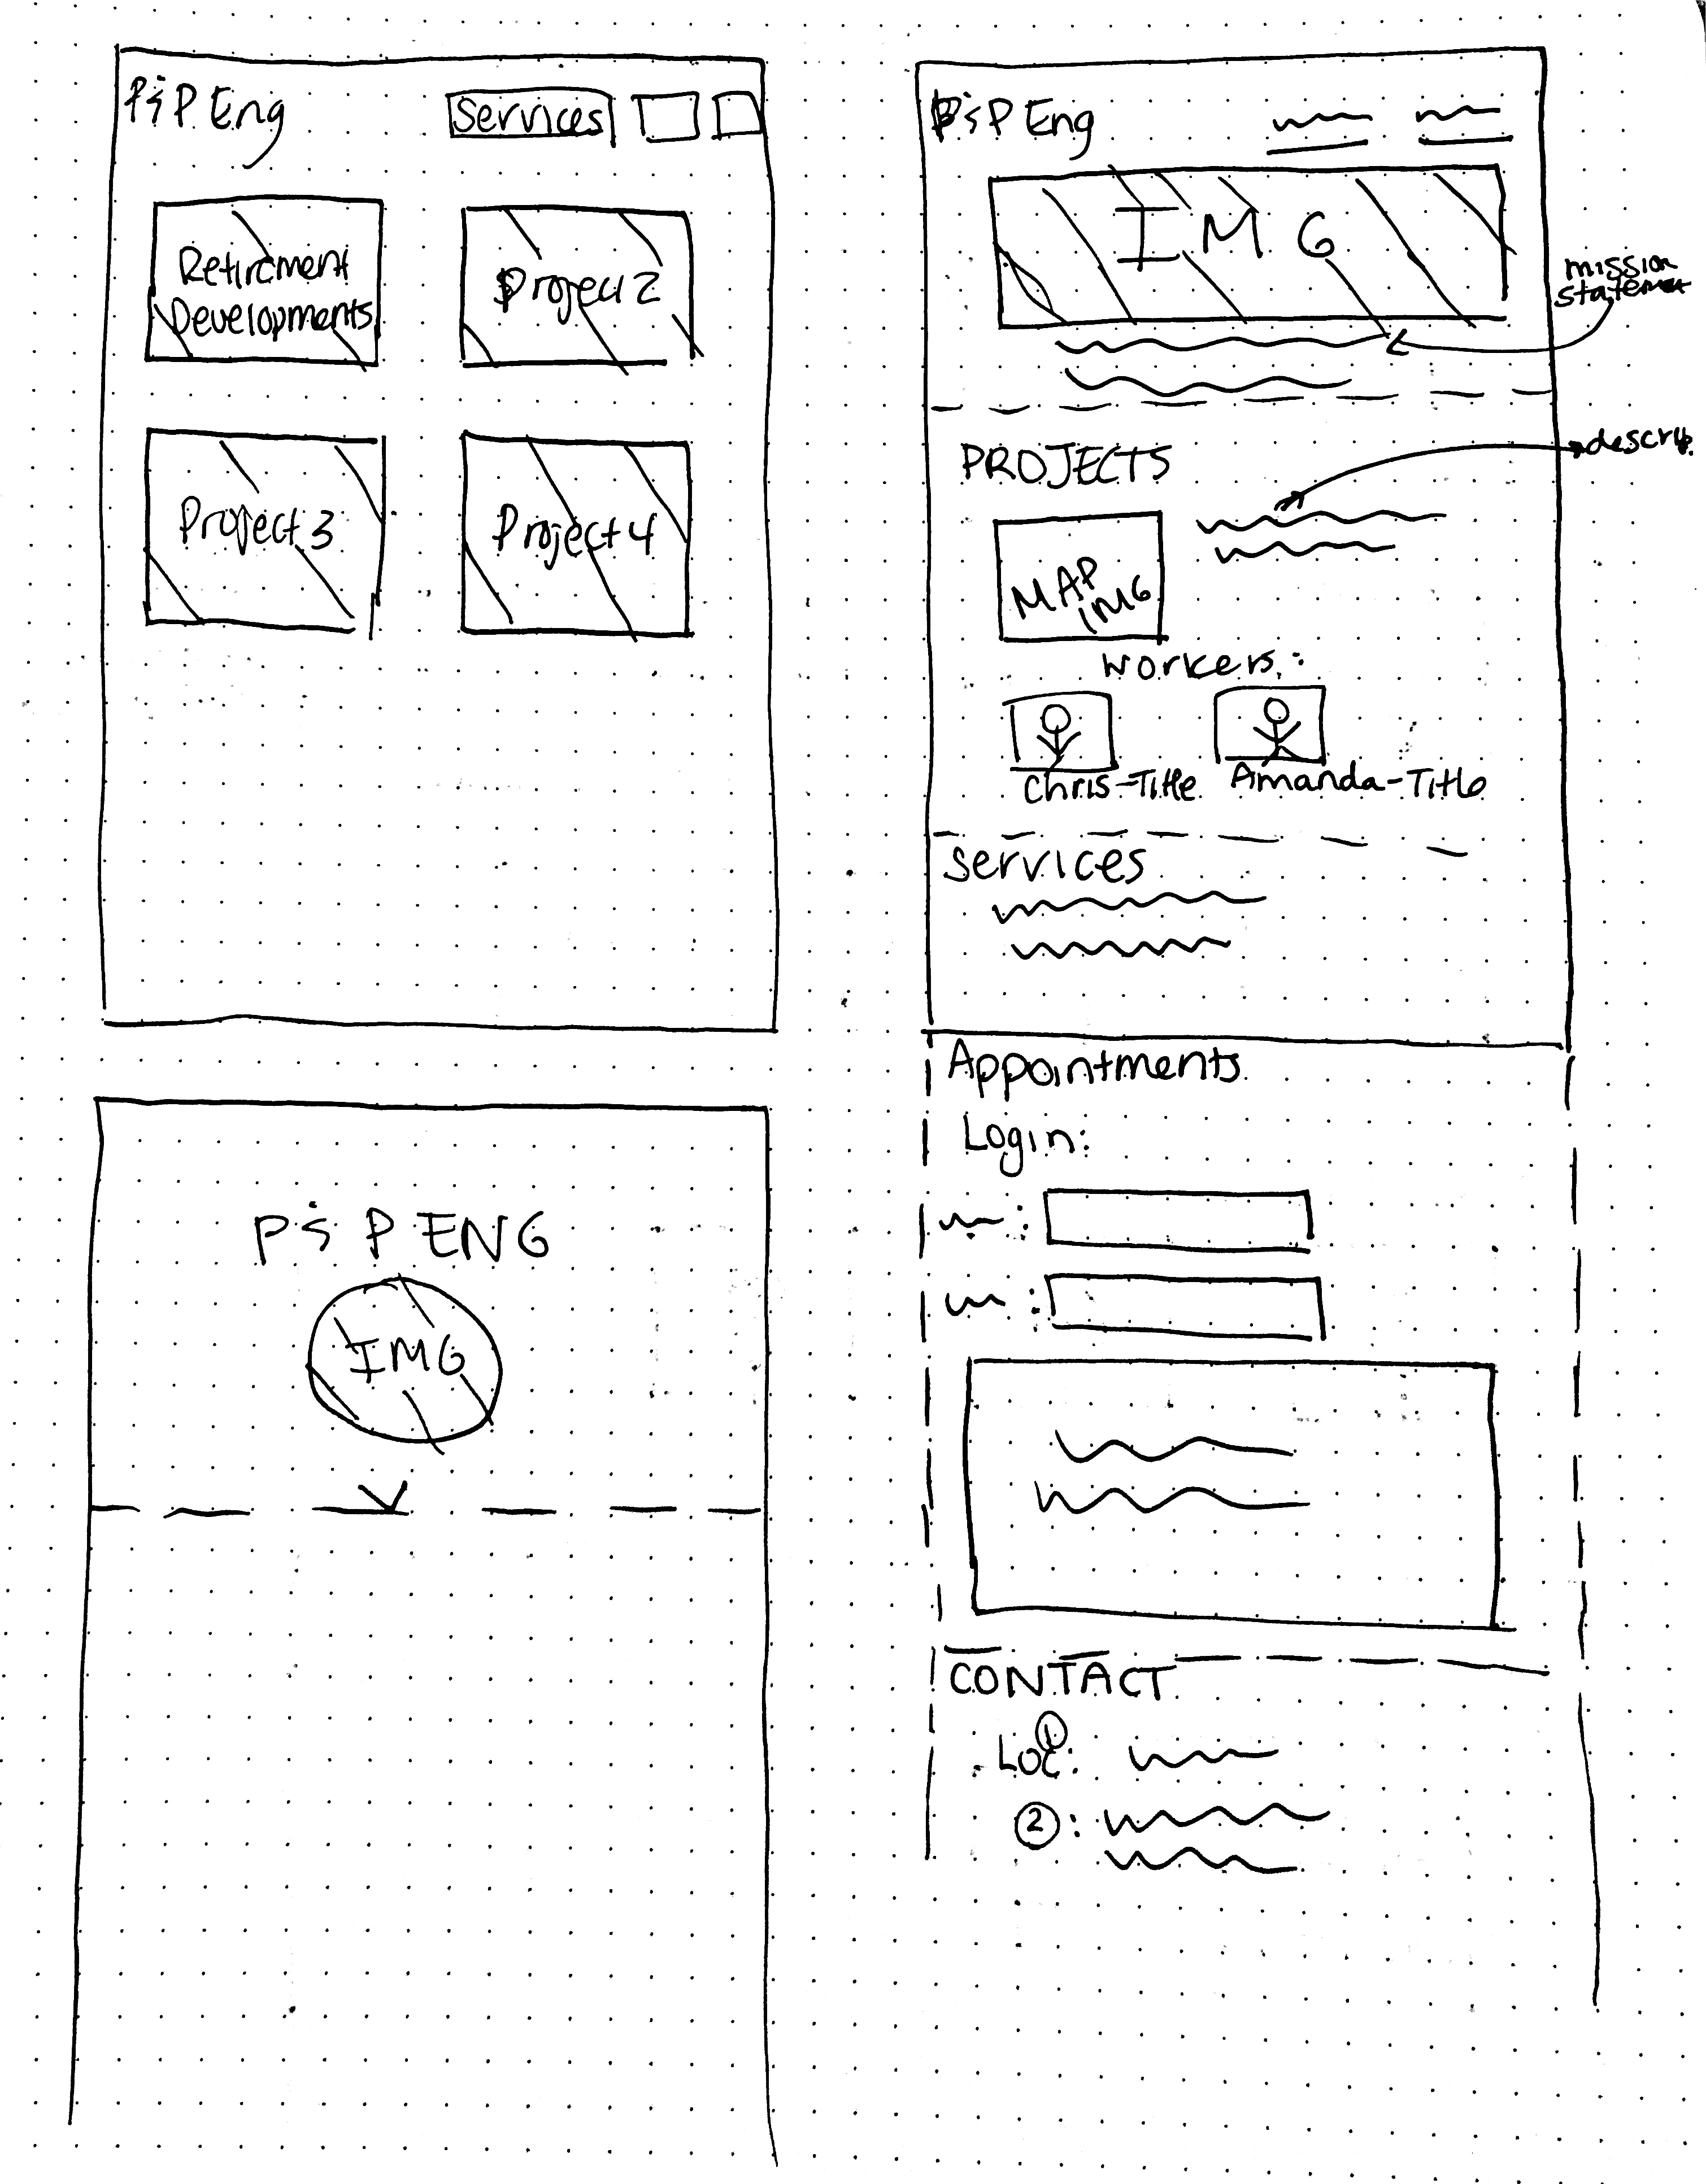 P&P Eng
Services
Retirement
Developments
Project 2
Project 3
Project 4
P&P Eng
IMG
mission
statement
PROJECTS
descrip.
MAP
IMG
workers:
Chris-Title
Amanda-Title
Services
Appointments
Login:
P & P ENG
IMG
CONTACT
1
Loc:
2: